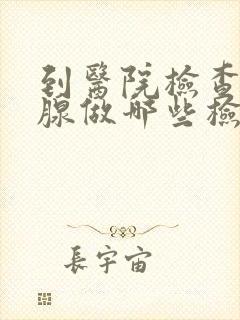 到醫院檢查
腺做哪些檢
長宇宙